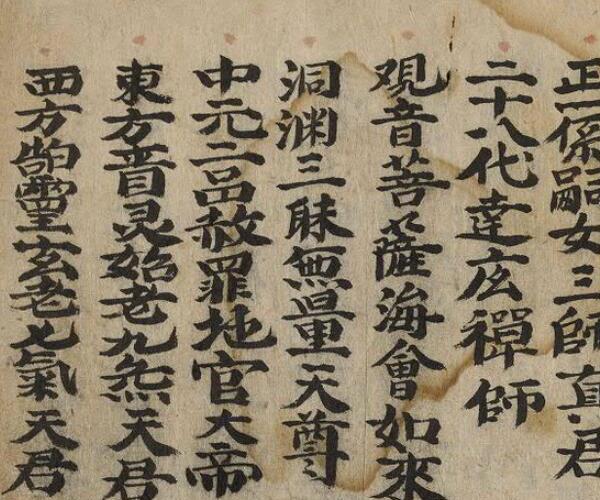 正係嗣女三師真君
二十八代達庅禪師
观音菩薩海會如來
洞渊三昧無量天尊
中元二品赦罪地官大帝
東方晋灵始老九炁天君
西方皓靈玄老七氣天君